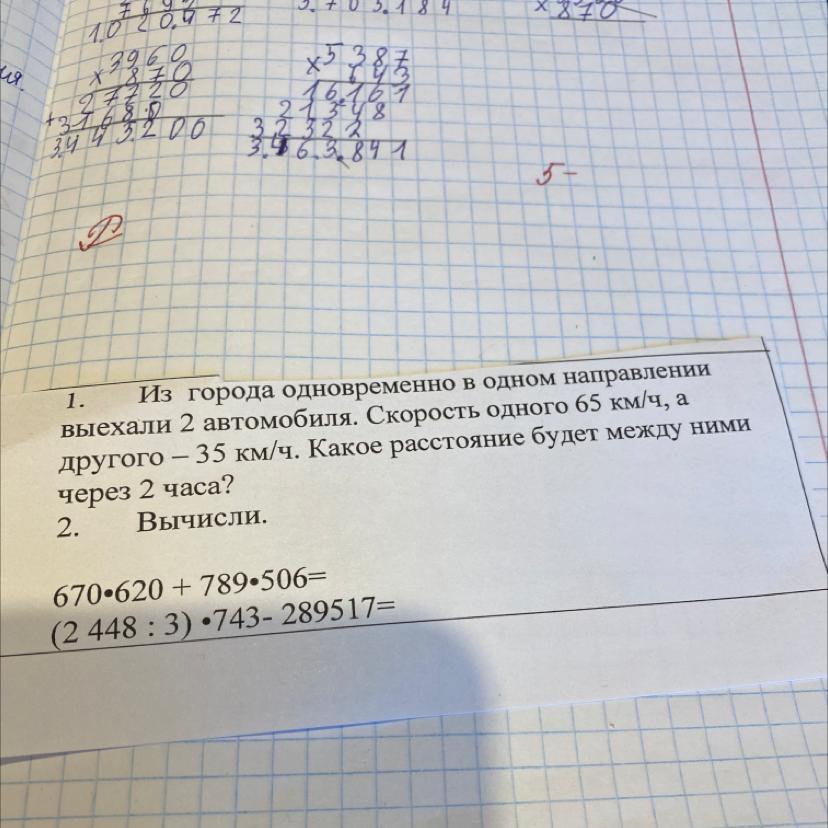 1.0 2 0.4 7 2
3.7 0 3.1 8 4
× 8 7 0
ия.
3960
× 870
27720
+ 3168.0
3.4 4 3.2 0 0
× 5387
643
16.161
21548
32322
3.4 6.3.841
5-
1. Из города одновременно в одном направлении
выехали 2 автомобиля. Скорость одного 65 км/ч, а
другого – 35 км/ч. Какое расстояние будет между ними
через 2 часа?
2. Вычисли.
670•620 + 789•506=
(2 448 : 3) •743- 289517=